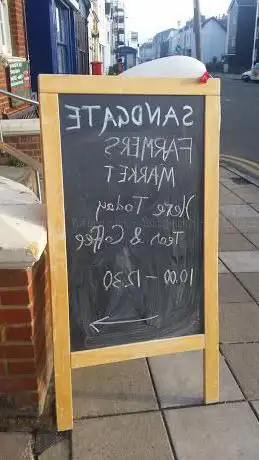 SANDGATE
FARMERS
MARKET
Here Today
Teas & Coffee
10.00 - 12.30